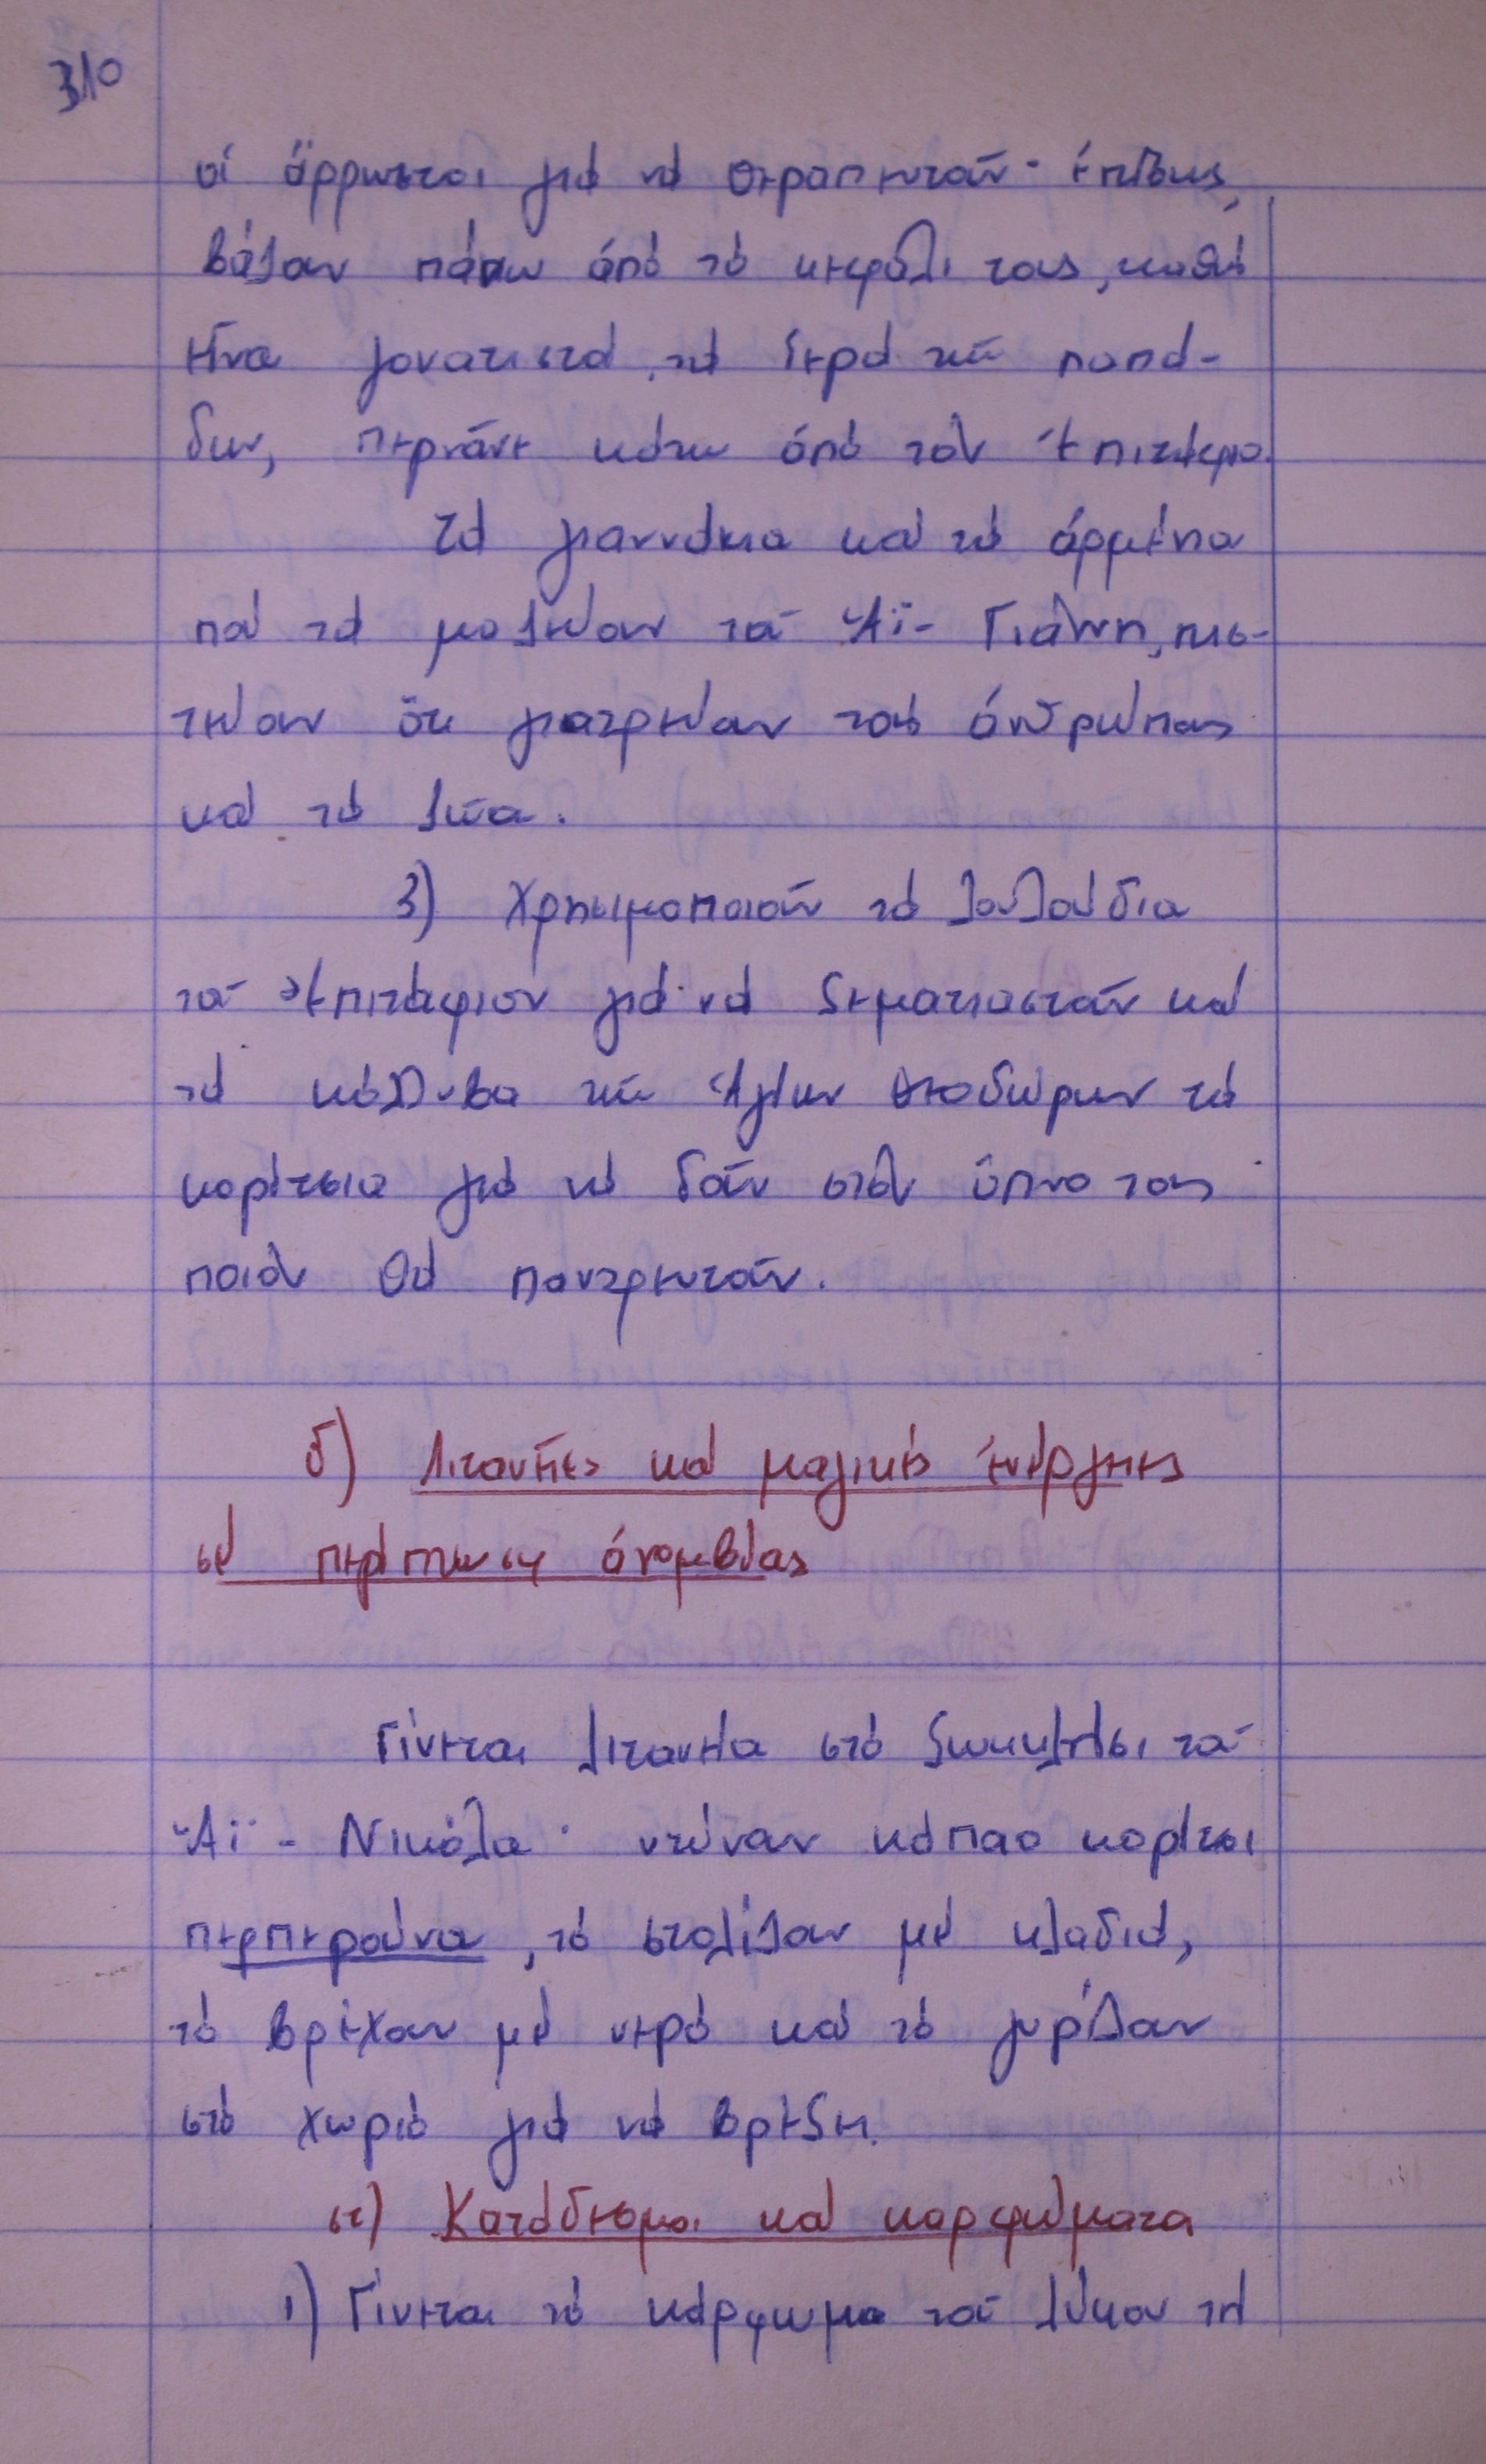 310
οἱ ἄρρωστοι γιά νά θεραπευτοῦν· ἐπίσης,
βάζαν πάνω ἀπό τό κεφάλι τους, καθώς
εἶναι γονατιστά, τά ἱερά τῶν παπά-
δων, περνᾶνε κάτω ἀπό τόν Ἐπιτάφιο.
Τά γιαννάκια καί τά ἀρμένια
πού τά μαζεύαν τοῦ Ἁϊ-Γιάννη, πισ-
τεύαν ὅτι γιατρεύαν τούς ἀνθρώπους
καί τά ζῶα.
3) Χρησιμοποιοῦν τά λουλούδια
τοῦ Ἐπιτάφιου γιά νά ξεματιαστοῦν καί
τά κόλλυβα τῶν Ἁγίων Θεοδώρων τά
κορίτσια γιά νά δοῦν στόν ὕπνο τους
ποιόν θά παντρευτοῦν.
δ) Λιτανεῖες καί μαγικές ἐνέργειες
σέ περίπτωση ἀνομβρίας
Γίνεται λιτανεία στό ξωκκλήσι τοῦ
Ἁϊ-Νικόλα· ντύναν κάποιο κορίτσι
περπερούνα, τό στολίζαν μέ κλαδιά,
τό βρέχαν μέ νερό καί τό γυρίζαν
στό χωριό γιά νά βρέξη.
στ) Κατάδεσμοι καί καρφώματα
1) Γίνεται τό κάρφωμα τοῦ λύκου τή